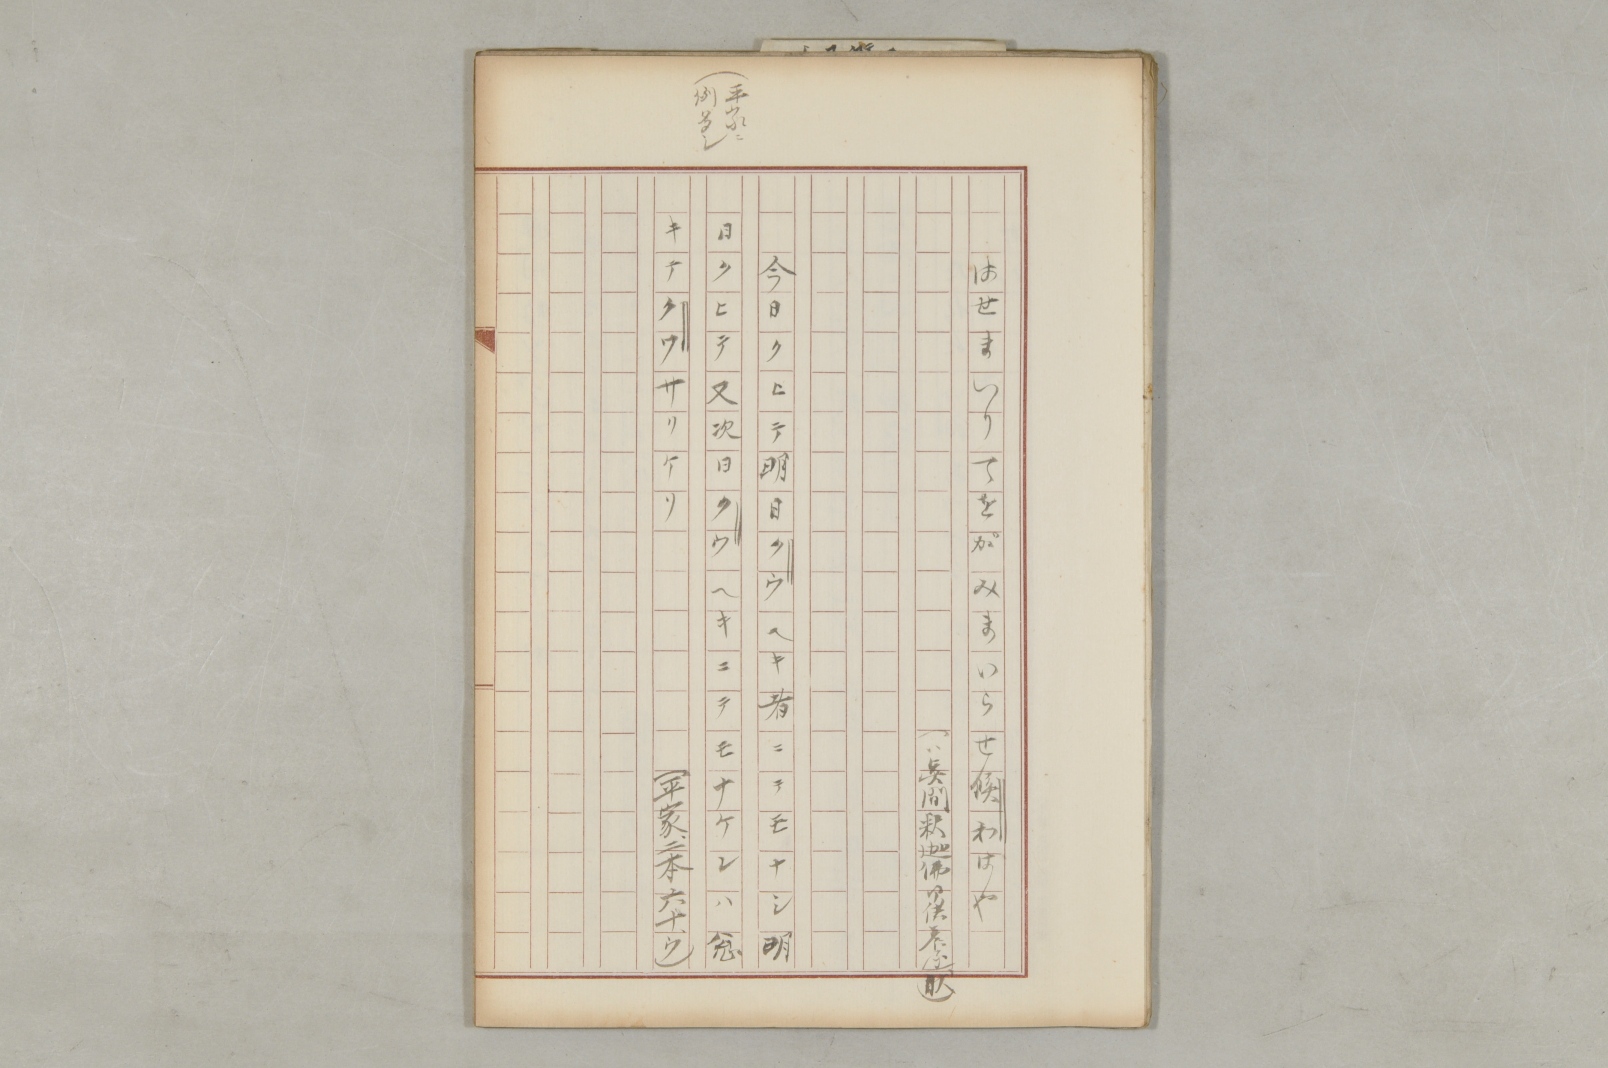 (平家ニ
例多シ
はせまいりてをがみまいらせ候わはや
今日クヒテ明日クウヘキ者ニテモナシ明
日クヒテ又次日クウヘキニテモナケレハ怨
キテクウサリケリ
(平家、二本六十、ウ)